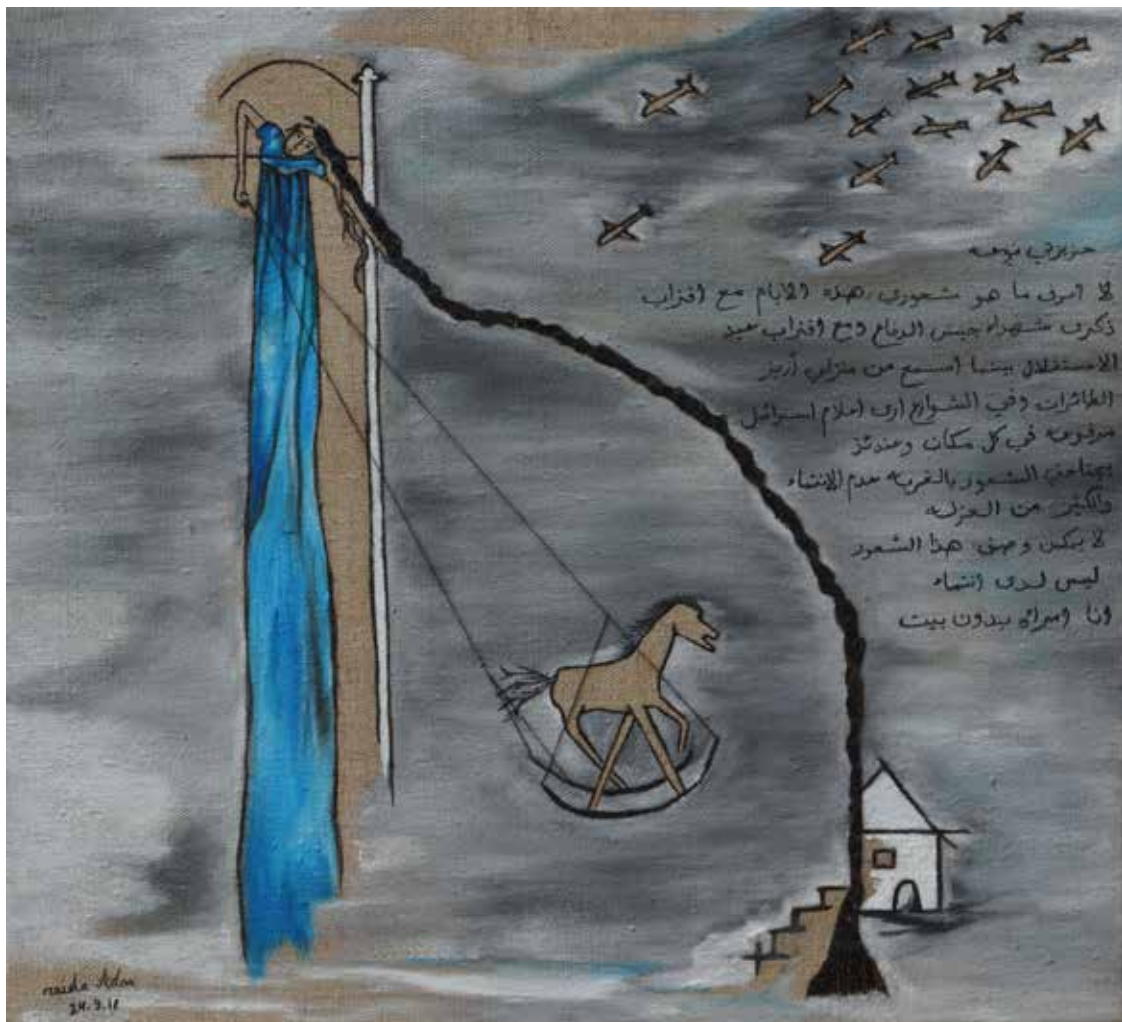 عزيزتي نوعه
لا اعرف ما هو شعوري هذه الايام مع اقتراب
ذكرى شهداء جيش الدفاع ومع اقتراب عيد
الاستقلال بينما أسمع من منزلي أزيز
الطائرات وفي الشوارع ارى اعلام اسرائيل
مرفوعه في كل مكان وعندئذ
يجتاحني الشعور بالغربه عدم الانتماء
والكثير من العزله
لا يمكن وصف هذا الشعور
ليس لدى انتماء
وانا امراه بدون بيت
raida Adon